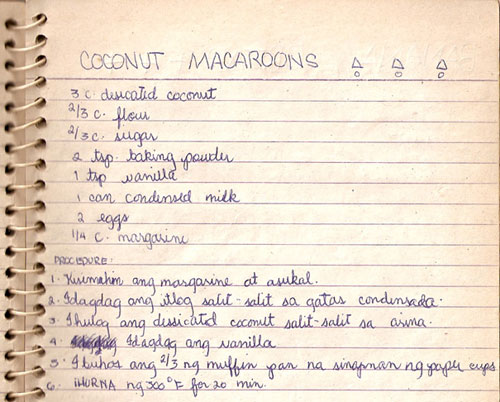 COCONUT MACAROONS
3 c. desicated coconut
2/3 c. flour
2/3 c. sugar
2 tsp. baking powder
1 tsp vanilla
1 can condensed milk
2 eggs
1/4 c. margarine
PROCEDURE:
1. Kisimahin ang margarine at asukal.
2. Idagdag ang itlog salit-salit sa gatas condensada.
3. Ihulog ang dessicated coconut salit-salit sa arina.
4. Idagdag ang vanilla
5. Ibuhos ang 2/3 ng muffin pan na sinapnan ng paper cups.
6. iHURNA ng 300°F for 20 min.